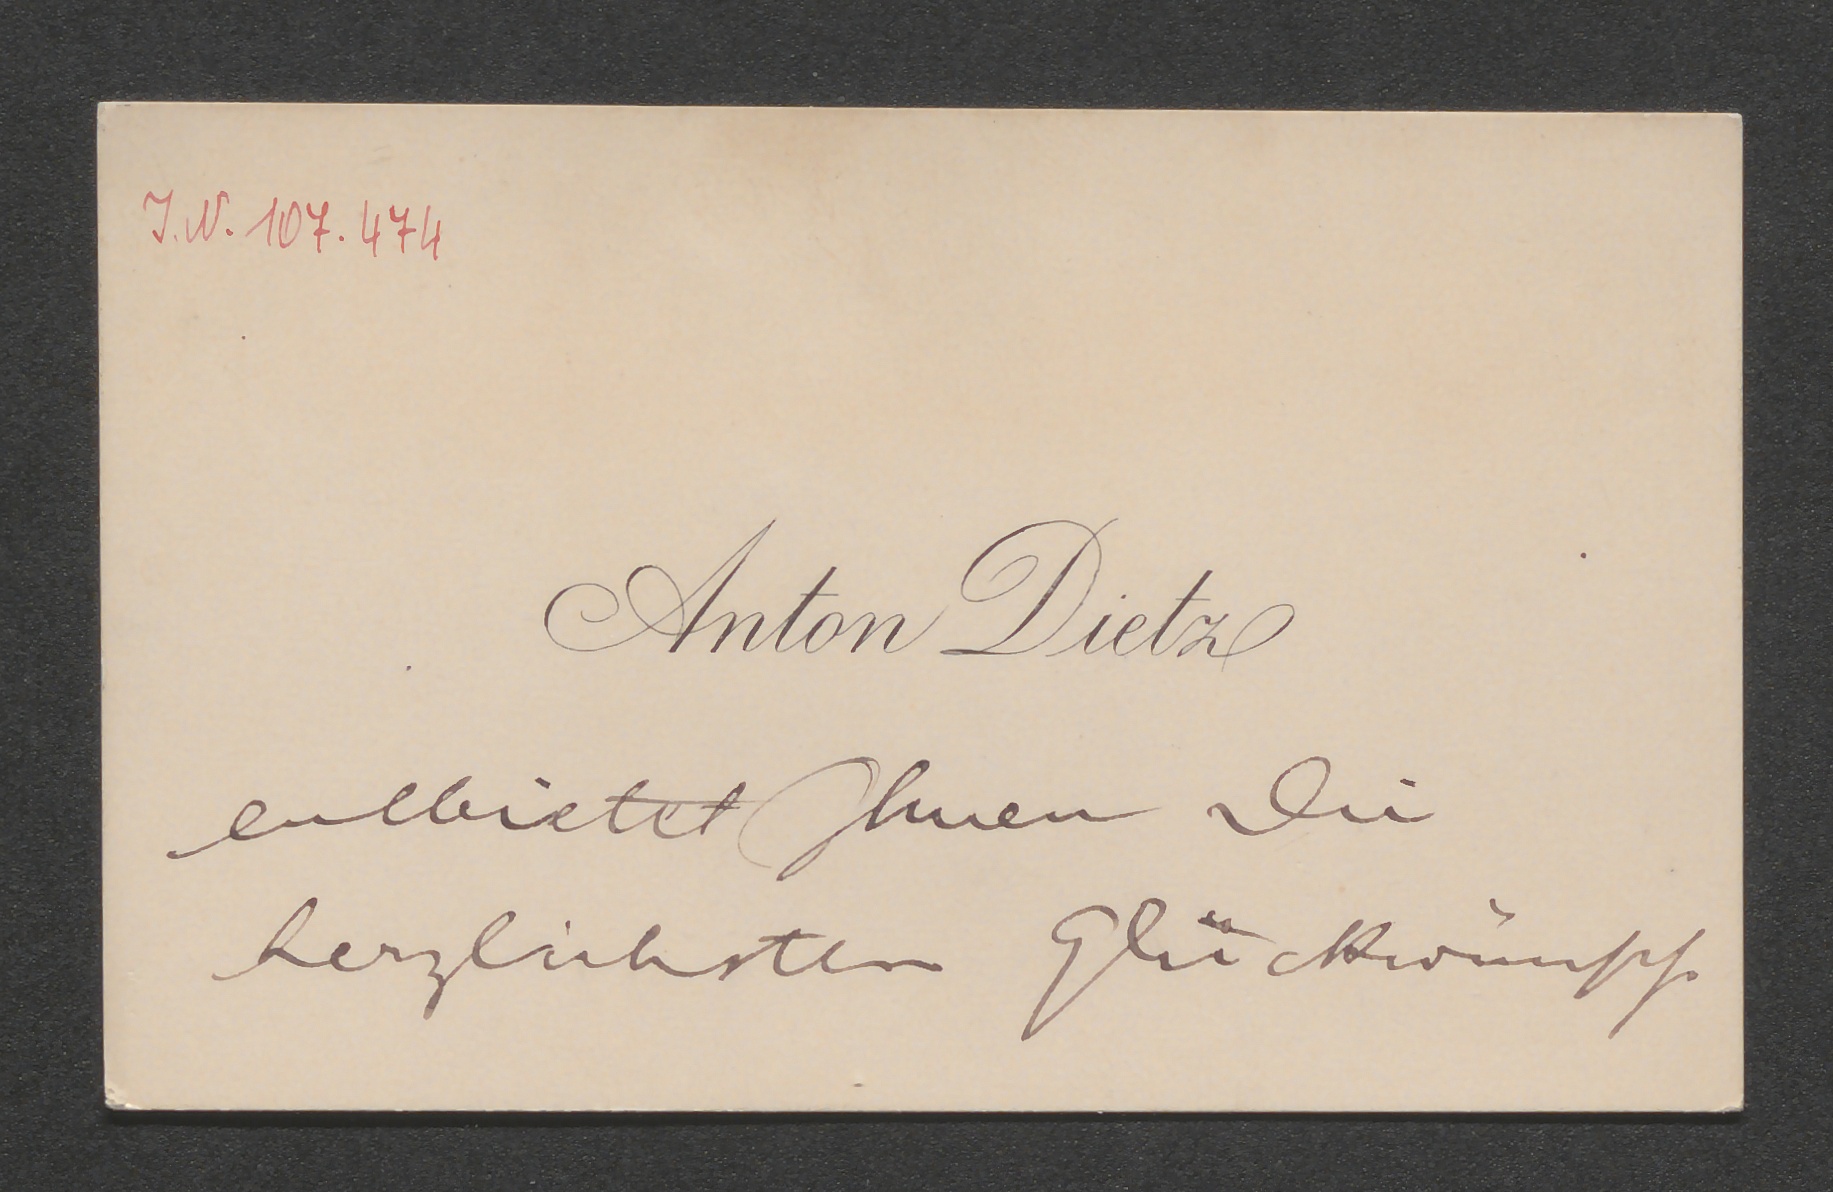 J.N. 107.474
Anton Dietz
entbietet Ihnen die
herzlichsten